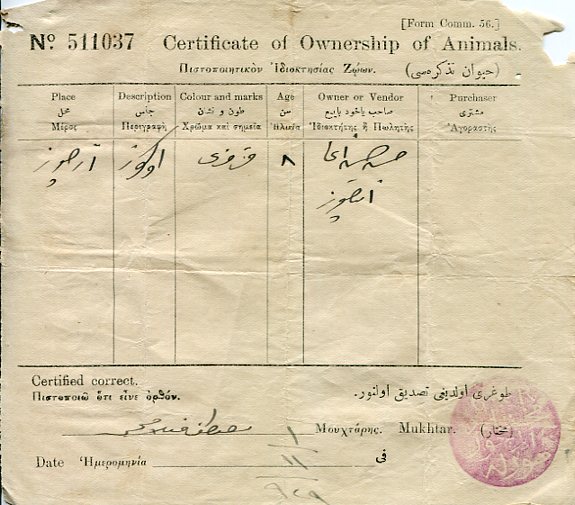 [Form Comm. 56.]
Nº 511037 Certificate of Ownership of Animals.
Πιστοποιητικὸν Ἰδιοκτησίας Ζῴων. (حیوان تذكره سی)
Place Description Colour and marks Age Owner or Vendor Purchaser
محل جنس لون و نشان سن صاحب یاخود بایع مشتری
Μέρος Περιγραφή Χρῶμα καὶ σημεῖα Ἡλικία Ἰδιοκτήτης ἢ Πωλητής Ἀγοραστής
اوكوز ٨
Certified correct.
Πιστοποιῶ ὅτι εἶνε ὀρθόν. طوغری اولدیغی تصدیق اولنور.
Μουχτάρης. Mukhtar. (مختار)
١
Date Ἡμερομηνία ١١ فی
٩٢٩